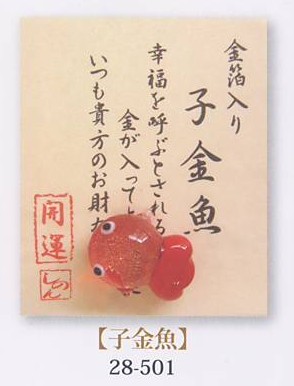 金箔入り
子金魚
幸福を呼ぶとされる
金が入って
いつも貴方のお財
開運
しのん
【子金魚】
28-501